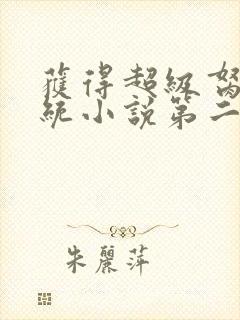 獲得超級
統小說第二
朱麗萍